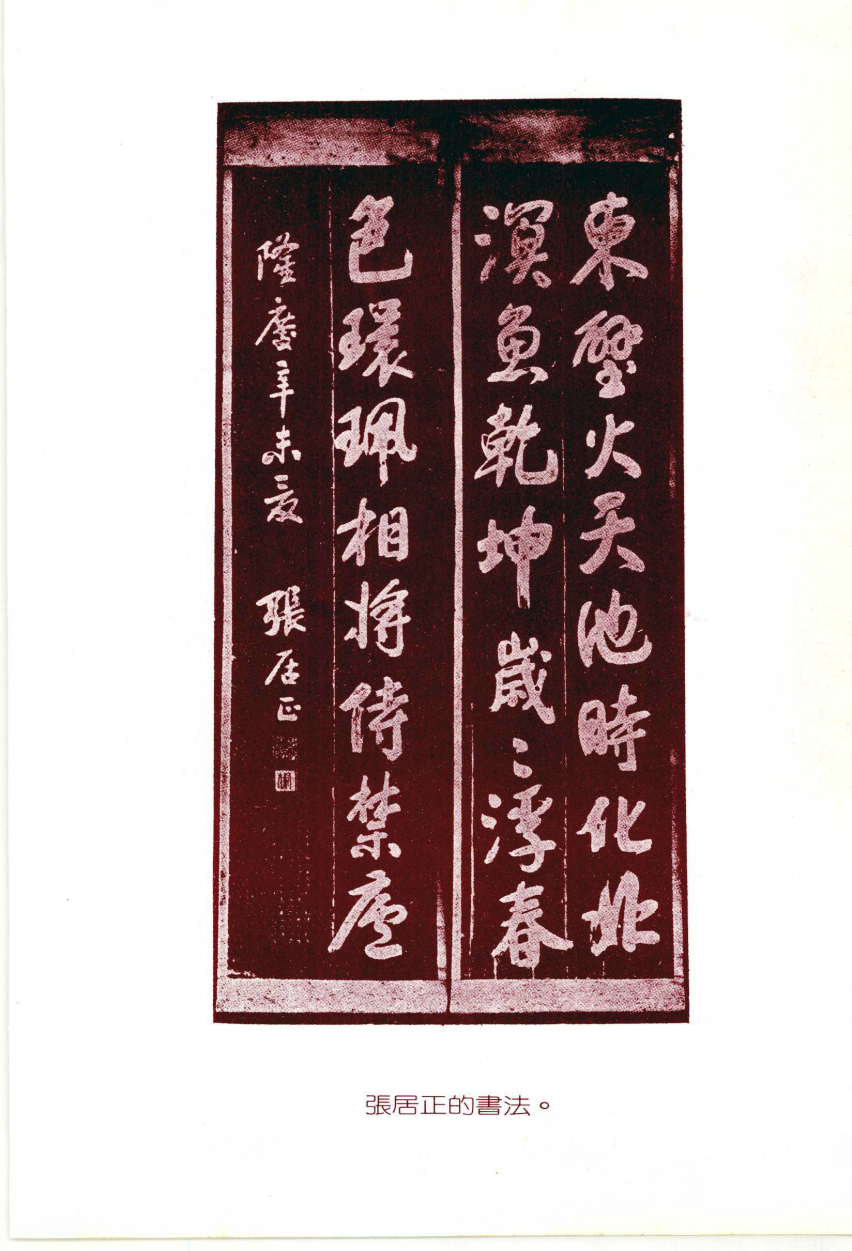 東壁火天池時化北
溟魚乾坤歲〻浮春
色環珮相將侍禁廬
隆慶辛未夏　張居正
張居正的書法。